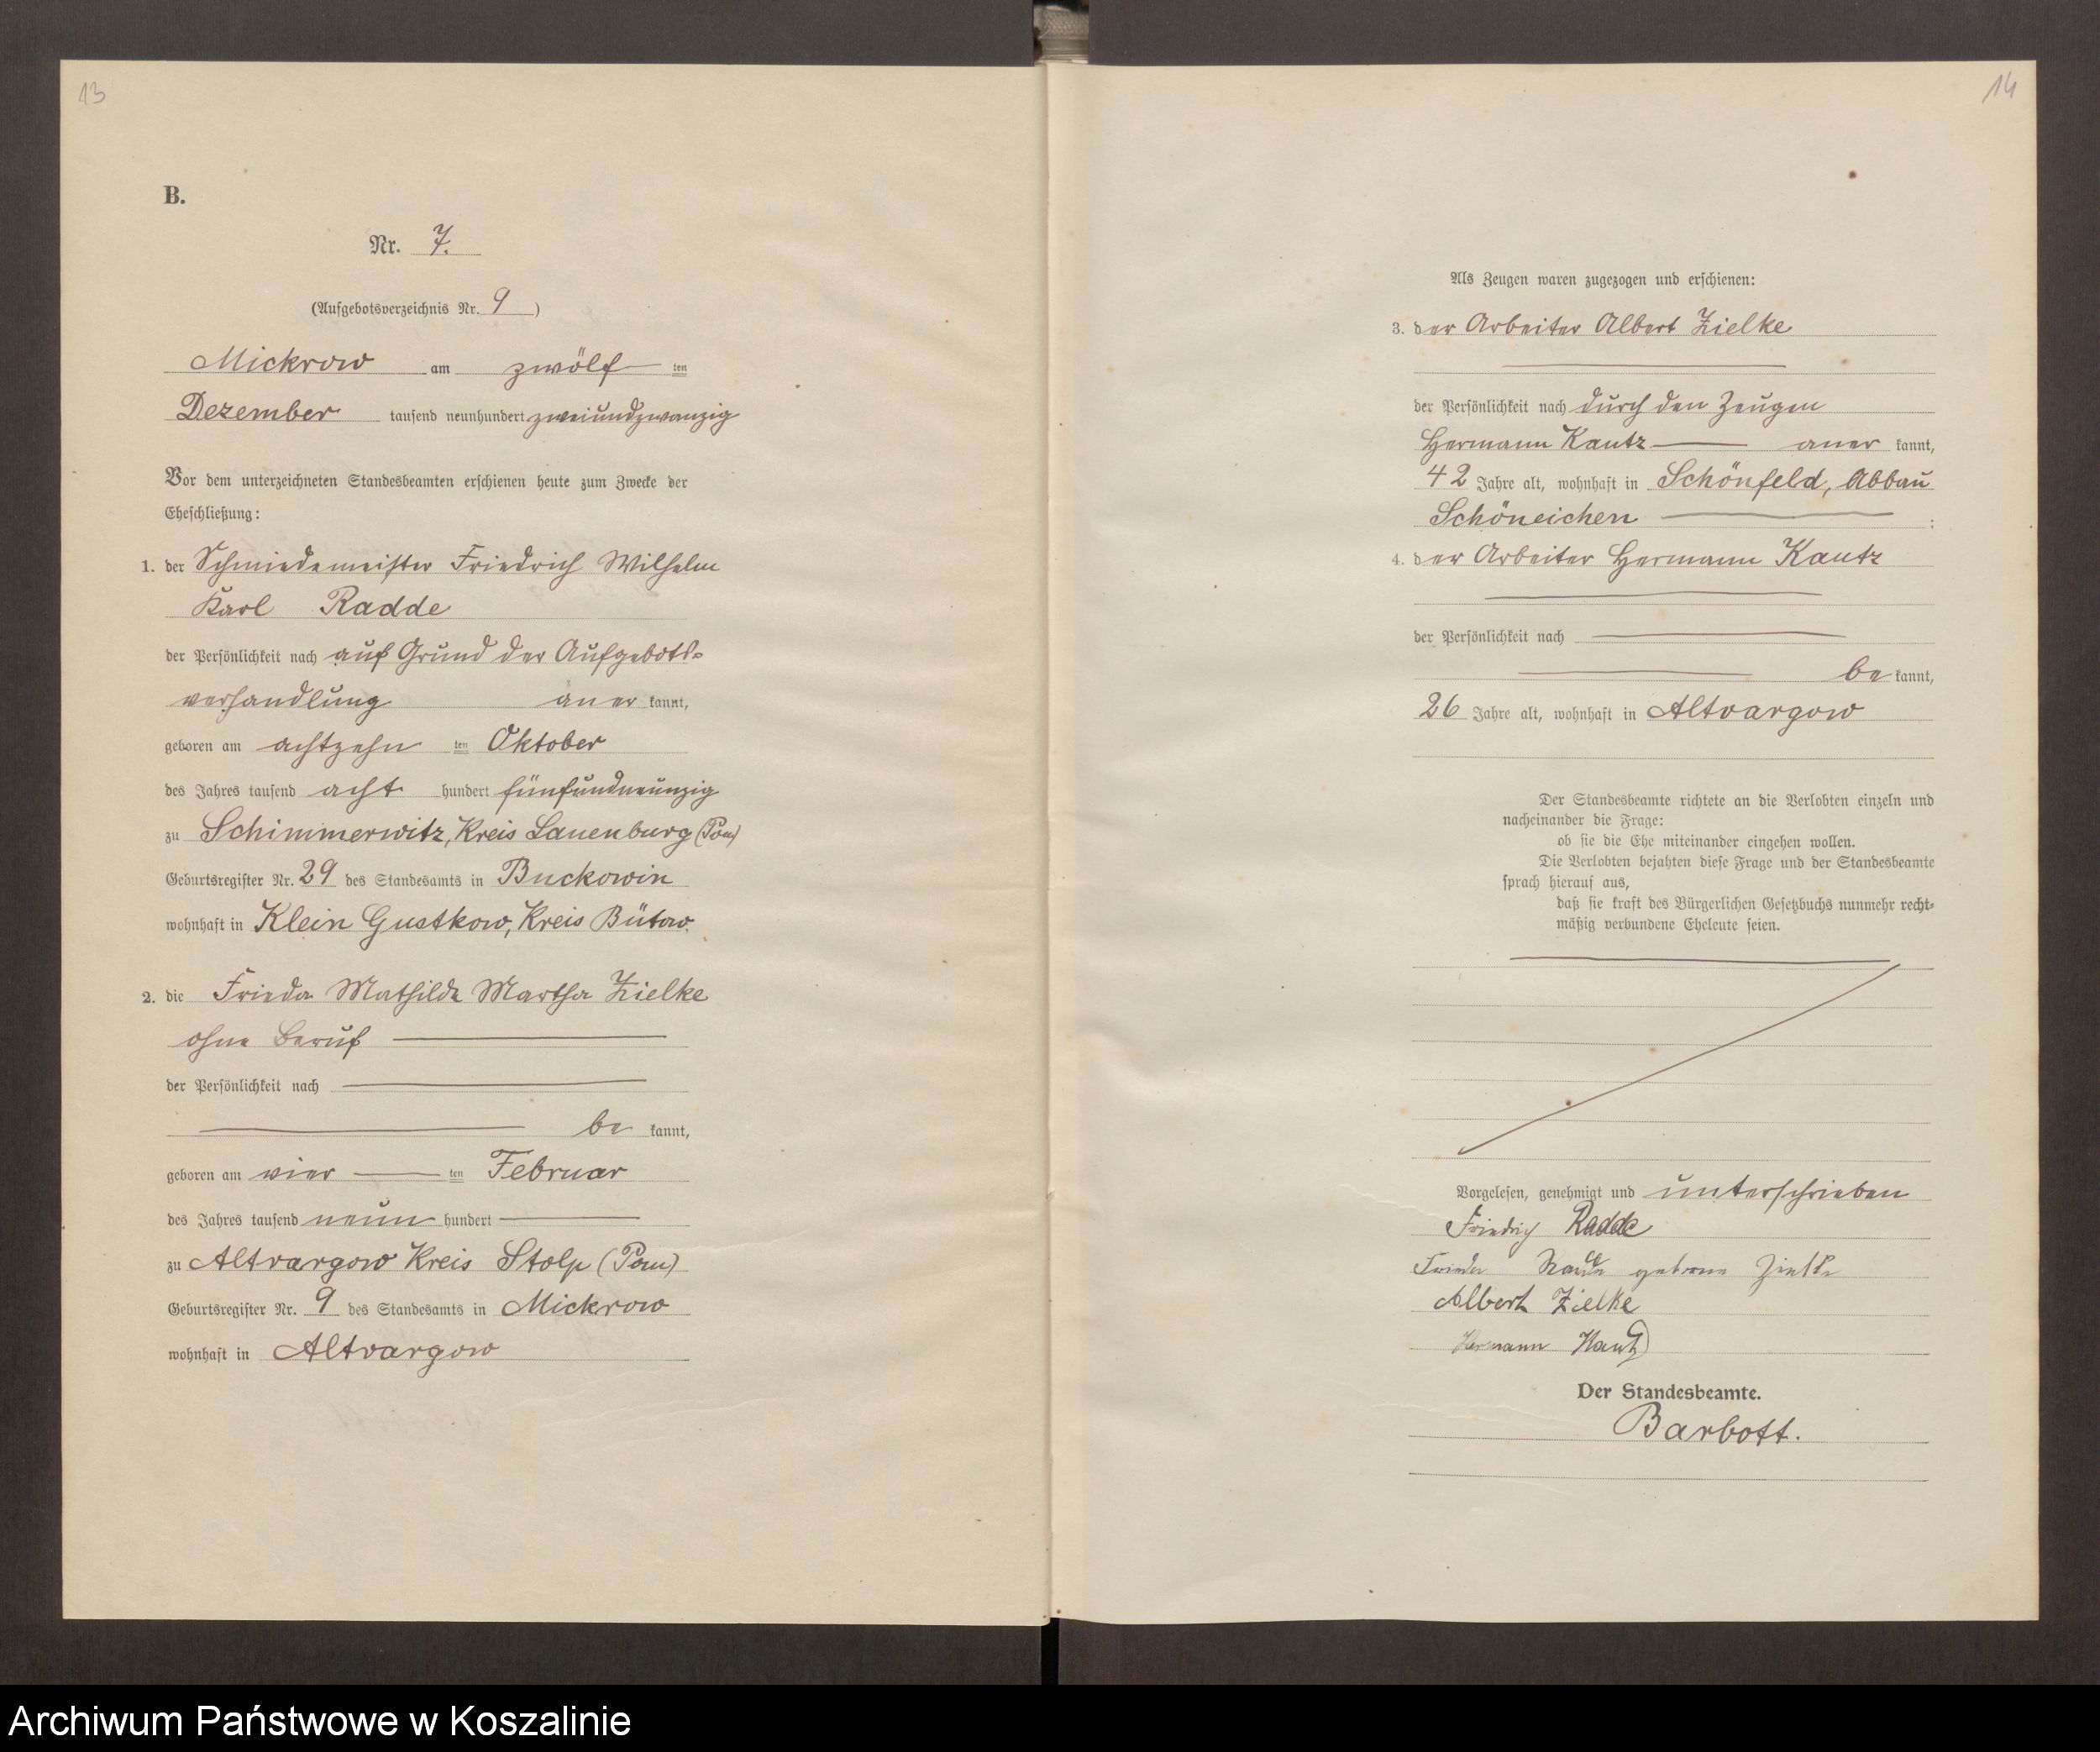 13
B.
Nr. 7.
(Aufgebotsverzeichnis Nr. 9)
Mickrow am zwölf ten
Dezember tausend neunhundert zweiundzwanzig
Vor dem unterzeichneten Standesbeamten erschienen heute zum Zwecke der
Eheschließung:
1. der Schmiedemeister Friedrich Wilhelm
Karl Radde
der Persönlichkeit nach auf Grund der Aufgebots-
verhandlung aner kannt,
geboren am achtzehn ten Oktober
des Jahres tausend acht hundert fünfundneunzig
zu Schimmerwitz, Kreis Lauenburg (Pom)
Geburtsregister Nr. 29 des Standesamts in Buckowin
wohnhaft in Klein Gustkow, Kreis Bütow.
2. die Frieda Mathilde Martha Zielke
ohne Beruf
der Persönlichkeit nach
be kannt,
geboren am vier ten Februar
des Jahres tausend neun hundert
zu Altvargow Kreis Stolp (Pom)
Geburtsregister Nr. 9 des Standesamts in Mickrow
wohnhaft in Altvargow
14
Als Zeugen waren zugezogen und erschienen:
3. der Arbeiter Albert Zielke
der Persönlichkeit nach durch den Zeugen
Hermann Kautz aner kannt,
42 Jahre alt, wohnhaft in Schönfeld, Abbau
Schöneichen ;
4. der Arbeiter Hermann Kautz
der Persönlichkeit nach
be kannt,
26 Jahre alt, wohnhaft in Altvargow
Der Standesbeamte richtete an die Verlobten einzeln und
nacheinander die Frage:
ob sie die Ehe miteinander eingehen wollen.
Die Verlobten bejahten diese Frage und der Standesbeamte
sprach hierauf aus,
daß sie kraft des Bürgerlichen Gesetzbuchs nunmehr recht-
mäßig verbundene Eheleute seien.
Vorgelesen, genehmigt und unterschrieben
Friedrich Radde
Frieda Radde geborene Zielke
Albert Zielke
Hermann Kautz
Der Standesbeamte.
Barbott.
Archiwum Państwowe w Koszalinie